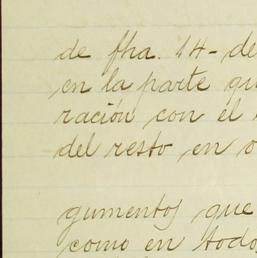 de fha. 14- de
en la parte qu
ración con el
del resto en o
gumentos que
como en todo